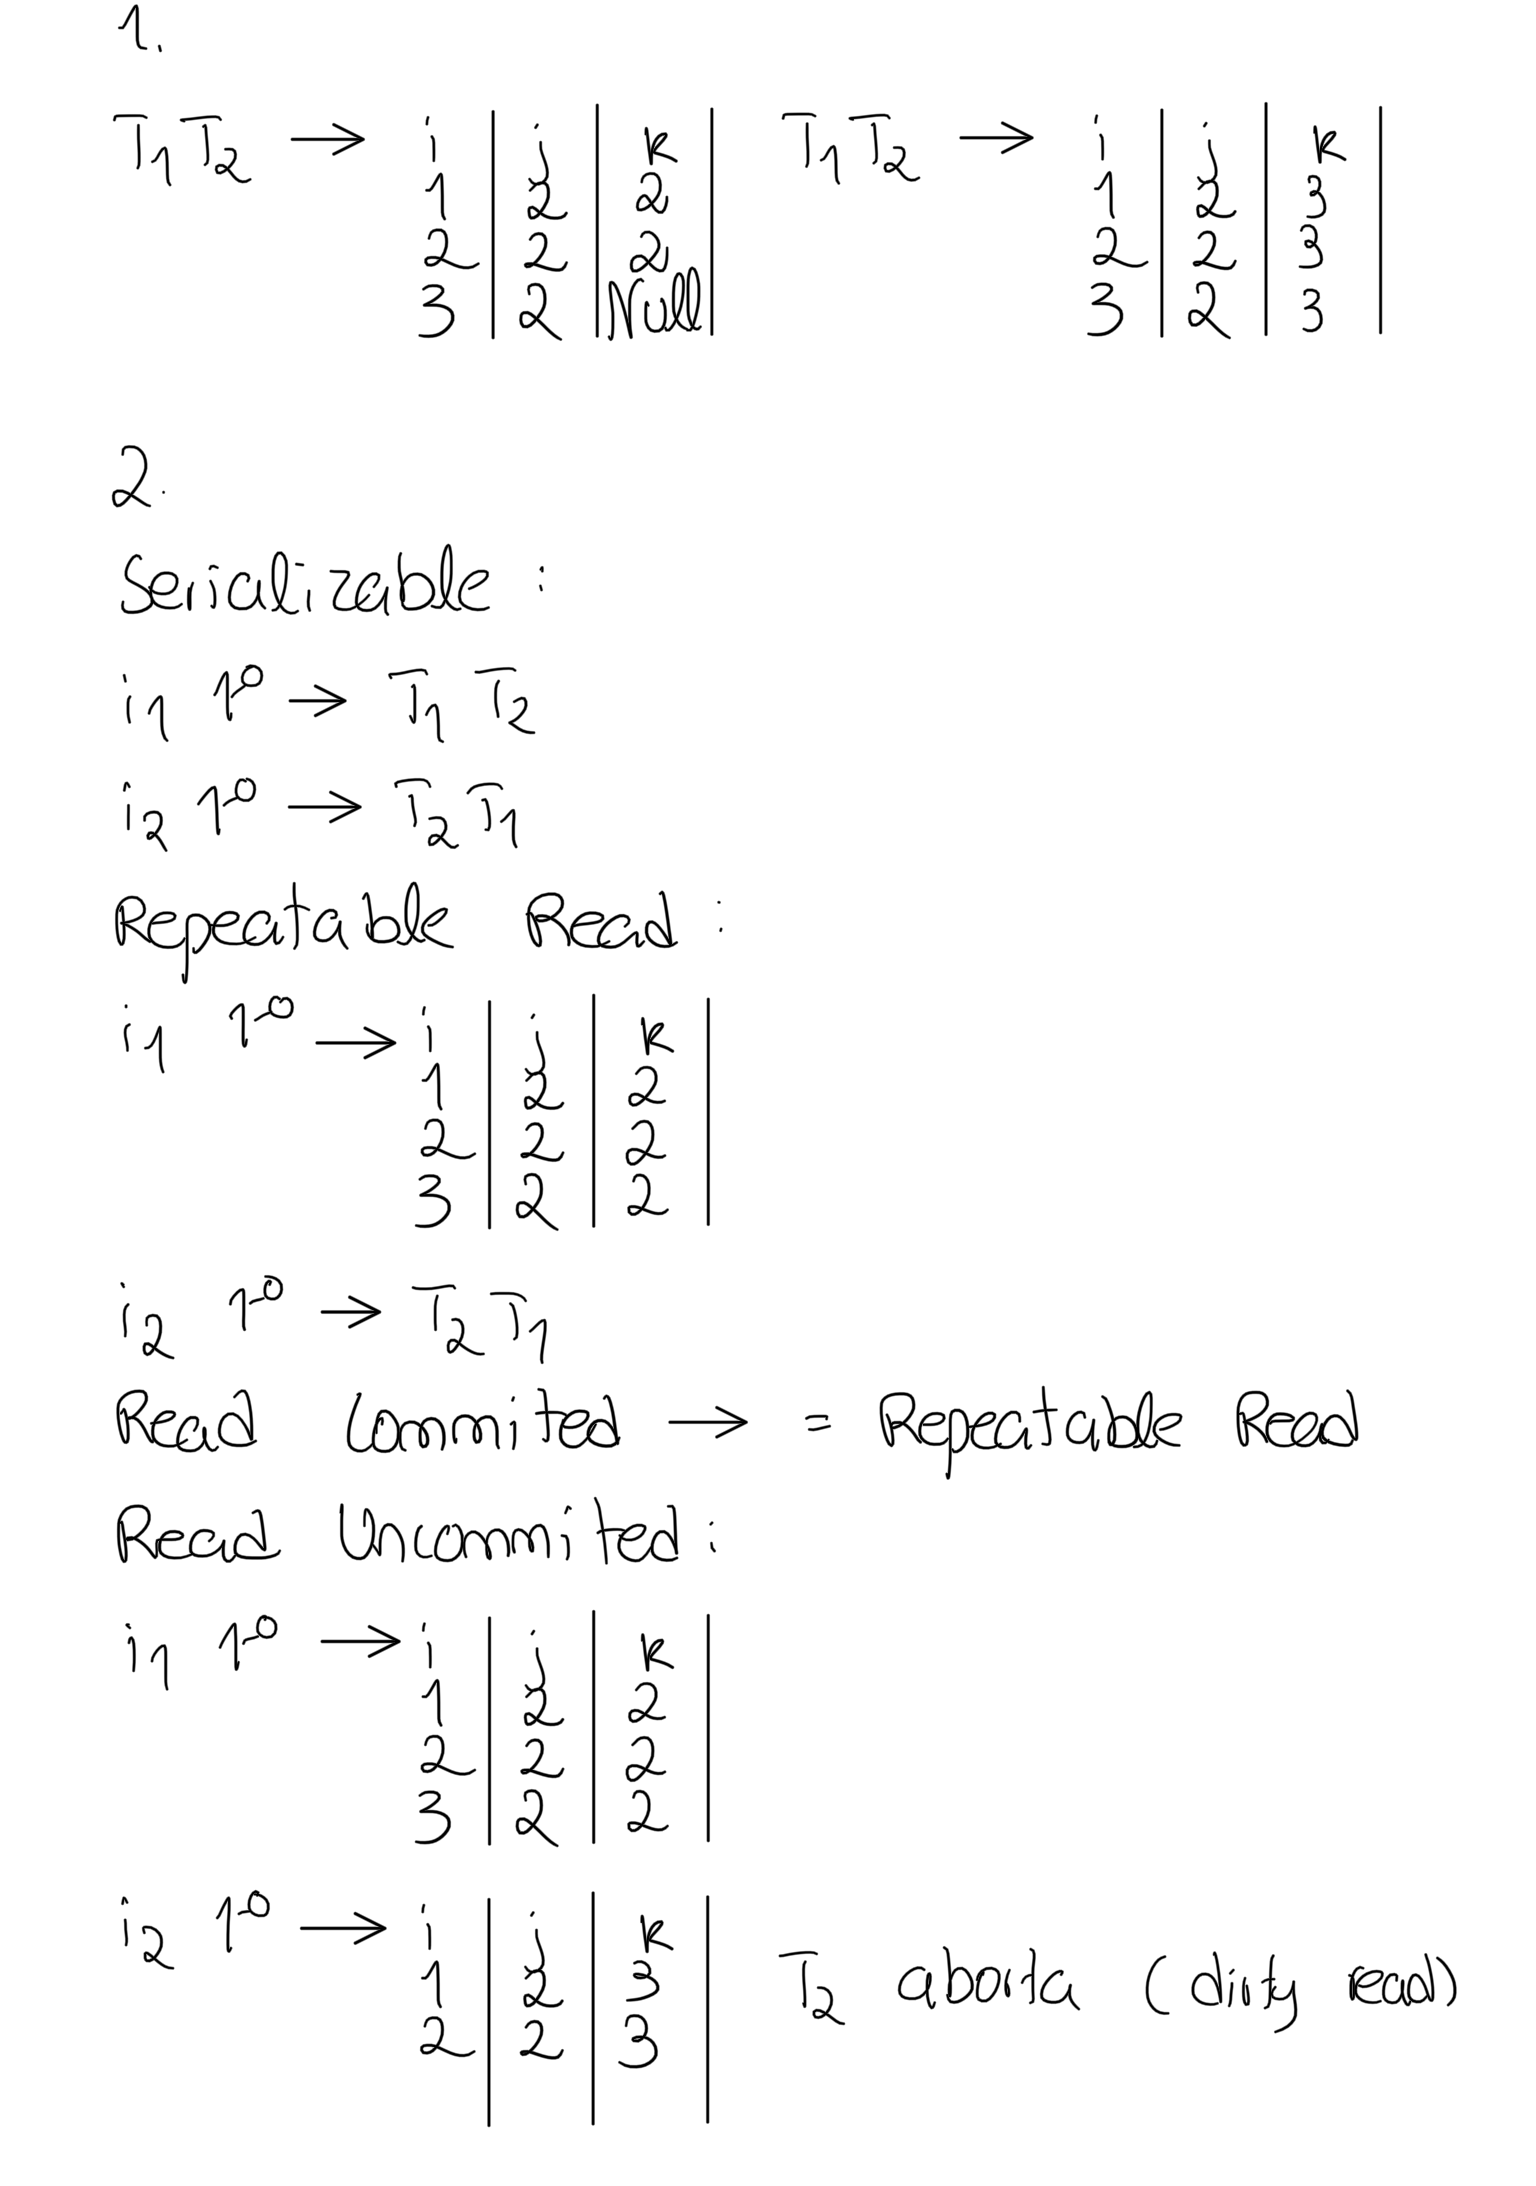 1.
T1 T2 → i | j | k | T1 T2 → i | j | k |
1 | 2 | 2 | 1 | 2 | 3 |
2 | 2 | 2 | 2 | 2 | 3 |
3 | 2 | Null | 3 | 2 | 3 |
2.
Serializable :
i1 1º → T1 T2
i2 1º → T2 T1
Repeatable Read :
i1 1º → i | j | k |
1 | 2 | 2 |
2 | 2 | 2 |
3 | 2 | 2 |
i2 1º → T2 T1
Read Commited → = Repeatable Read
Read Uncommited :
i1 1º → i | j | k |
1 | 2 | 2 |
2 | 2 | 2 |
3 | 2 | 2 |
i2 1º → i | j | k |
1 | 2 | 3 | T2 aborta (dirty read)
2 | 2 | 3 |